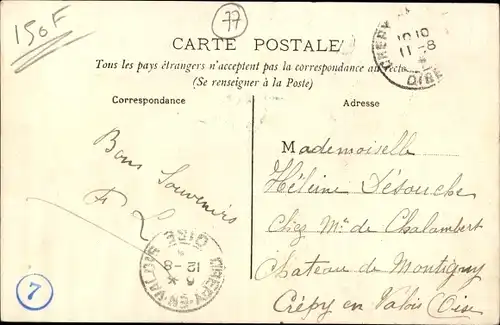 150F
77
CARTE POSTALE
Tous les pays étrangers n'acceptent pas la correspondance au recto
(Se renseigner à la Poste)
Correspondance
Adresse
Bons Souvenirs
F L
Mademoiselle
Hélène Désouche
Chez Mme de Chalambert
Chateau de Montigny
Crépy en Valois (Oise
CRÉPY-EN-VALOIS
12-8
OISE
CRÉPY
11-8
OISE
7